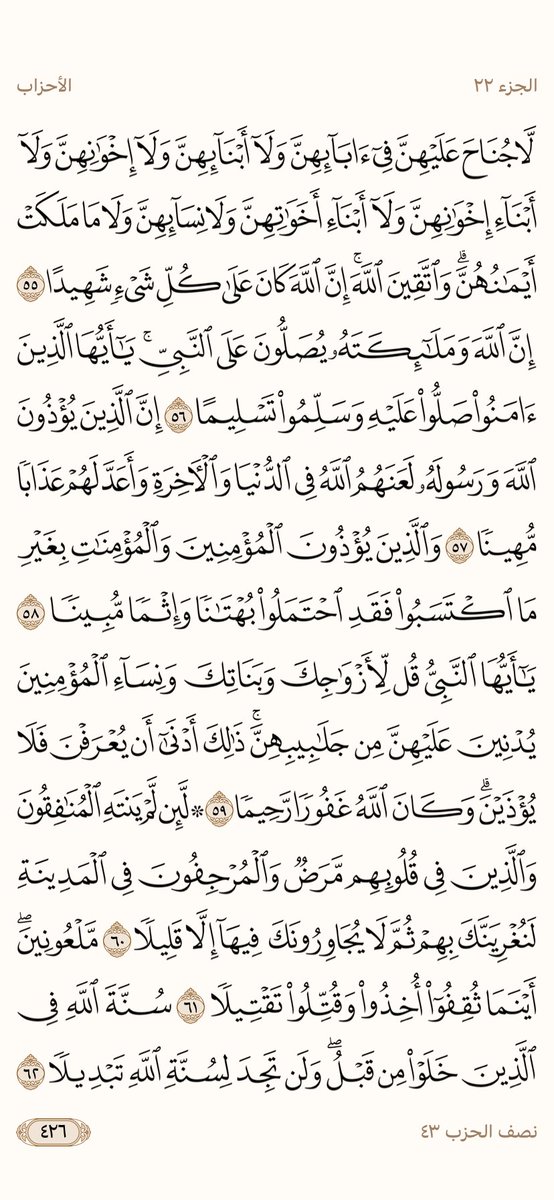 الجزء ٢٢
الأحزاب
لَّا جُنَاحَ عَلَيْهِنَّ فِىٓ ءَابَآئِهِنَّ وَلَآ أَبْنَآئِهِنَّ وَلَآ إِخْوَٰنِهِنَّ وَلَآ
أَبْنَآءِ إِخْوَٰنِهِنَّ وَلَآ أَبْنَآءِ أَخَوَٰتِهِنَّ وَلَا نِسَآئِهِنَّ وَلَا مَا مَلَكَتْ
أَيْمَٰنُهُنَّۗ وَٱتَّقِينَ ٱللَّهَۚ إِنَّ ٱللَّهَ كَانَ عَلَىٰ كُلِّ شَىْءٍ شَهِيدًا ٥٥
إِنَّ ٱللَّهَ وَمَلَٰٓئِكَتَهُۥ يُصَلُّونَ عَلَى ٱلنَّبِىِّۚ يَٰٓأَيُّهَا ٱلَّذِينَ
ءَامَنُوا۟ صَلُّوا۟ عَلَيْهِ وَسَلِّمُوا۟ تَسْلِيمًا ٥٦ إِنَّ ٱلَّذِينَ يُؤْذُونَ
ٱللَّهَ وَرَسُولَهُۥ لَعَنَهُمُ ٱللَّهُ فِى ٱلدُّنْيَا وَٱلْءَاخِرَةِ وَأَعَدَّ لَهُمْ عَذَابًا
مُّهِينًا ٥٧ وَٱلَّذِينَ يُؤْذُونَ ٱلْمُؤْمِنِينَ وَٱلْمُؤْمِنَٰتِ بِغَيْرِ
مَا ٱكْتَسَبُوا۟ فَقَدِ ٱحْتَمَلُوا۟ بُهْتَٰنًا وَإِثْمًا مُّبِينًا ٥٨
يَٰٓأَيُّهَا ٱلنَّبِىُّ قُل لِّأَزْوَٰجِكَ وَبَنَاتِكَ وَنِسَآءِ ٱلْمُؤْمِنِينَ
يُدْنِينَ عَلَيْهِنَّ مِن جَلَٰبِيبِهِنَّۚ ذَٰلِكَ أَدْنَىٰٓ أَن يُعْرَفْنَ فَلَا
يُؤْذَيْنَۗ وَكَانَ ٱللَّهُ غَفُورًا رَّحِيمًا ٥٩ ۞ لَّئِن لَّمْ يَنتَهِ ٱلْمُنَٰفِقُونَ
وَٱلَّذِينَ فِى قُلُوبِهِم مَّرَضٌ وَٱلْمُرْجِفُونَ فِى ٱلْمَدِينَةِ
لَنُغْرِيَنَّكَ بِهِمْ ثُمَّ لَا يُجَاوِرُونَكَ فِيهَآ إِلَّا قَلِيلًا ٦٠ مَّلْعُونِينَۖ
أَيْنَمَا ثُقِفُوٓا۟ أُخِذُوا۟ وَقُتِّلُوا۟ تَقْتِيلًا ٦١ سُنَّةَ ٱللَّهِ فِى
ٱلَّذِينَ خَلَوْا۟ مِن قَبْلُۖ وَلَن تَجِدَ لِسُنَّةِ ٱللَّهِ تَبْدِيلًا ٦٢
نصف الحزب ٤٣
٤٢٦